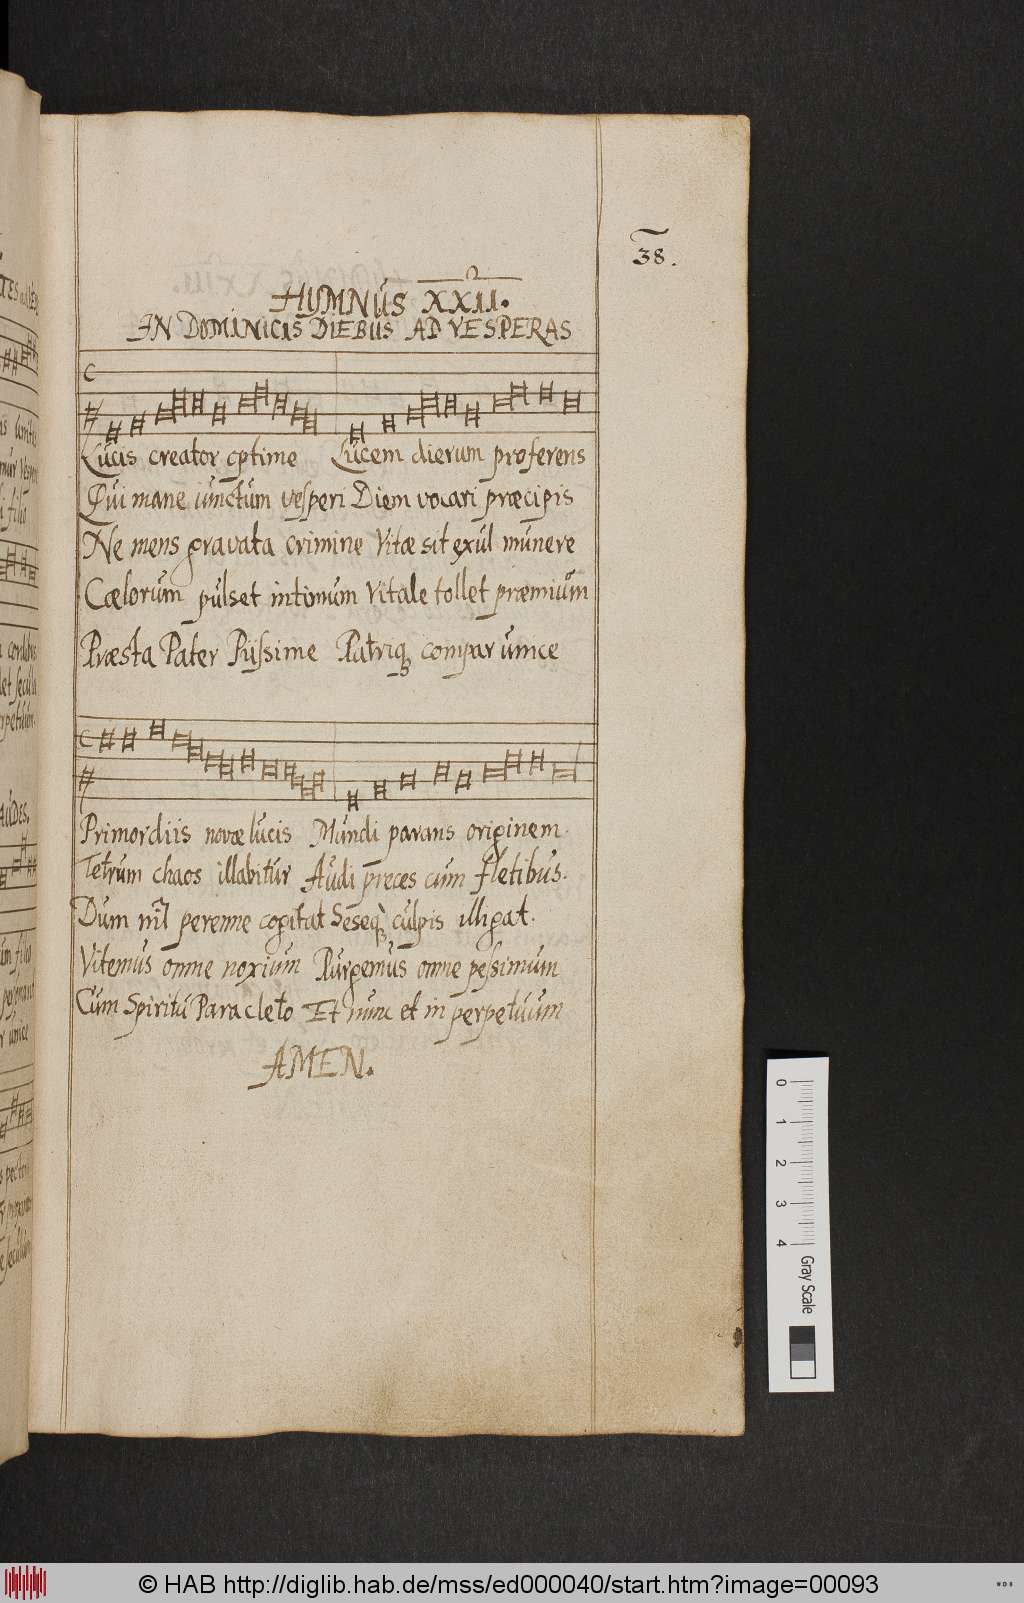 38.
HYMNUS XXII.
IN DOMINICIS DIEBUS AD VESPERAS
Lucis creator optime Lucem dierum proferens
Qui mane iunctum vesperi Diem vocari præcipis
Ne mens gravata crimine Vitæ sit exul munere
Cælorum pulset intimum Vitale tollet præmium
Præsta Pater Piissime Patriq; compar unice
Primordiis novæ lucis Mundi parans originem.
Tetrum chaos illabitur Audi preces cum fletibus.
Dum nil perenne cogitat Seseq; culpis illigat.
Vitemus omne noxium Purgemus omne pessimum
Cum Spiritu Paracleto Et nunc et in perpetuum
AMEN.
0 1 2 3 4 Gray Scale
© HAB http://diglib.hab.de/mss/ed000040/start.htm?image=00093